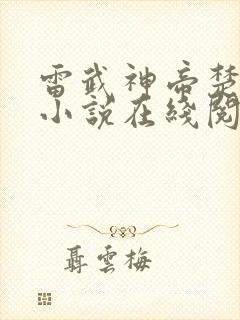 雷武神帝楚
小説在綫閱
聶雲梅